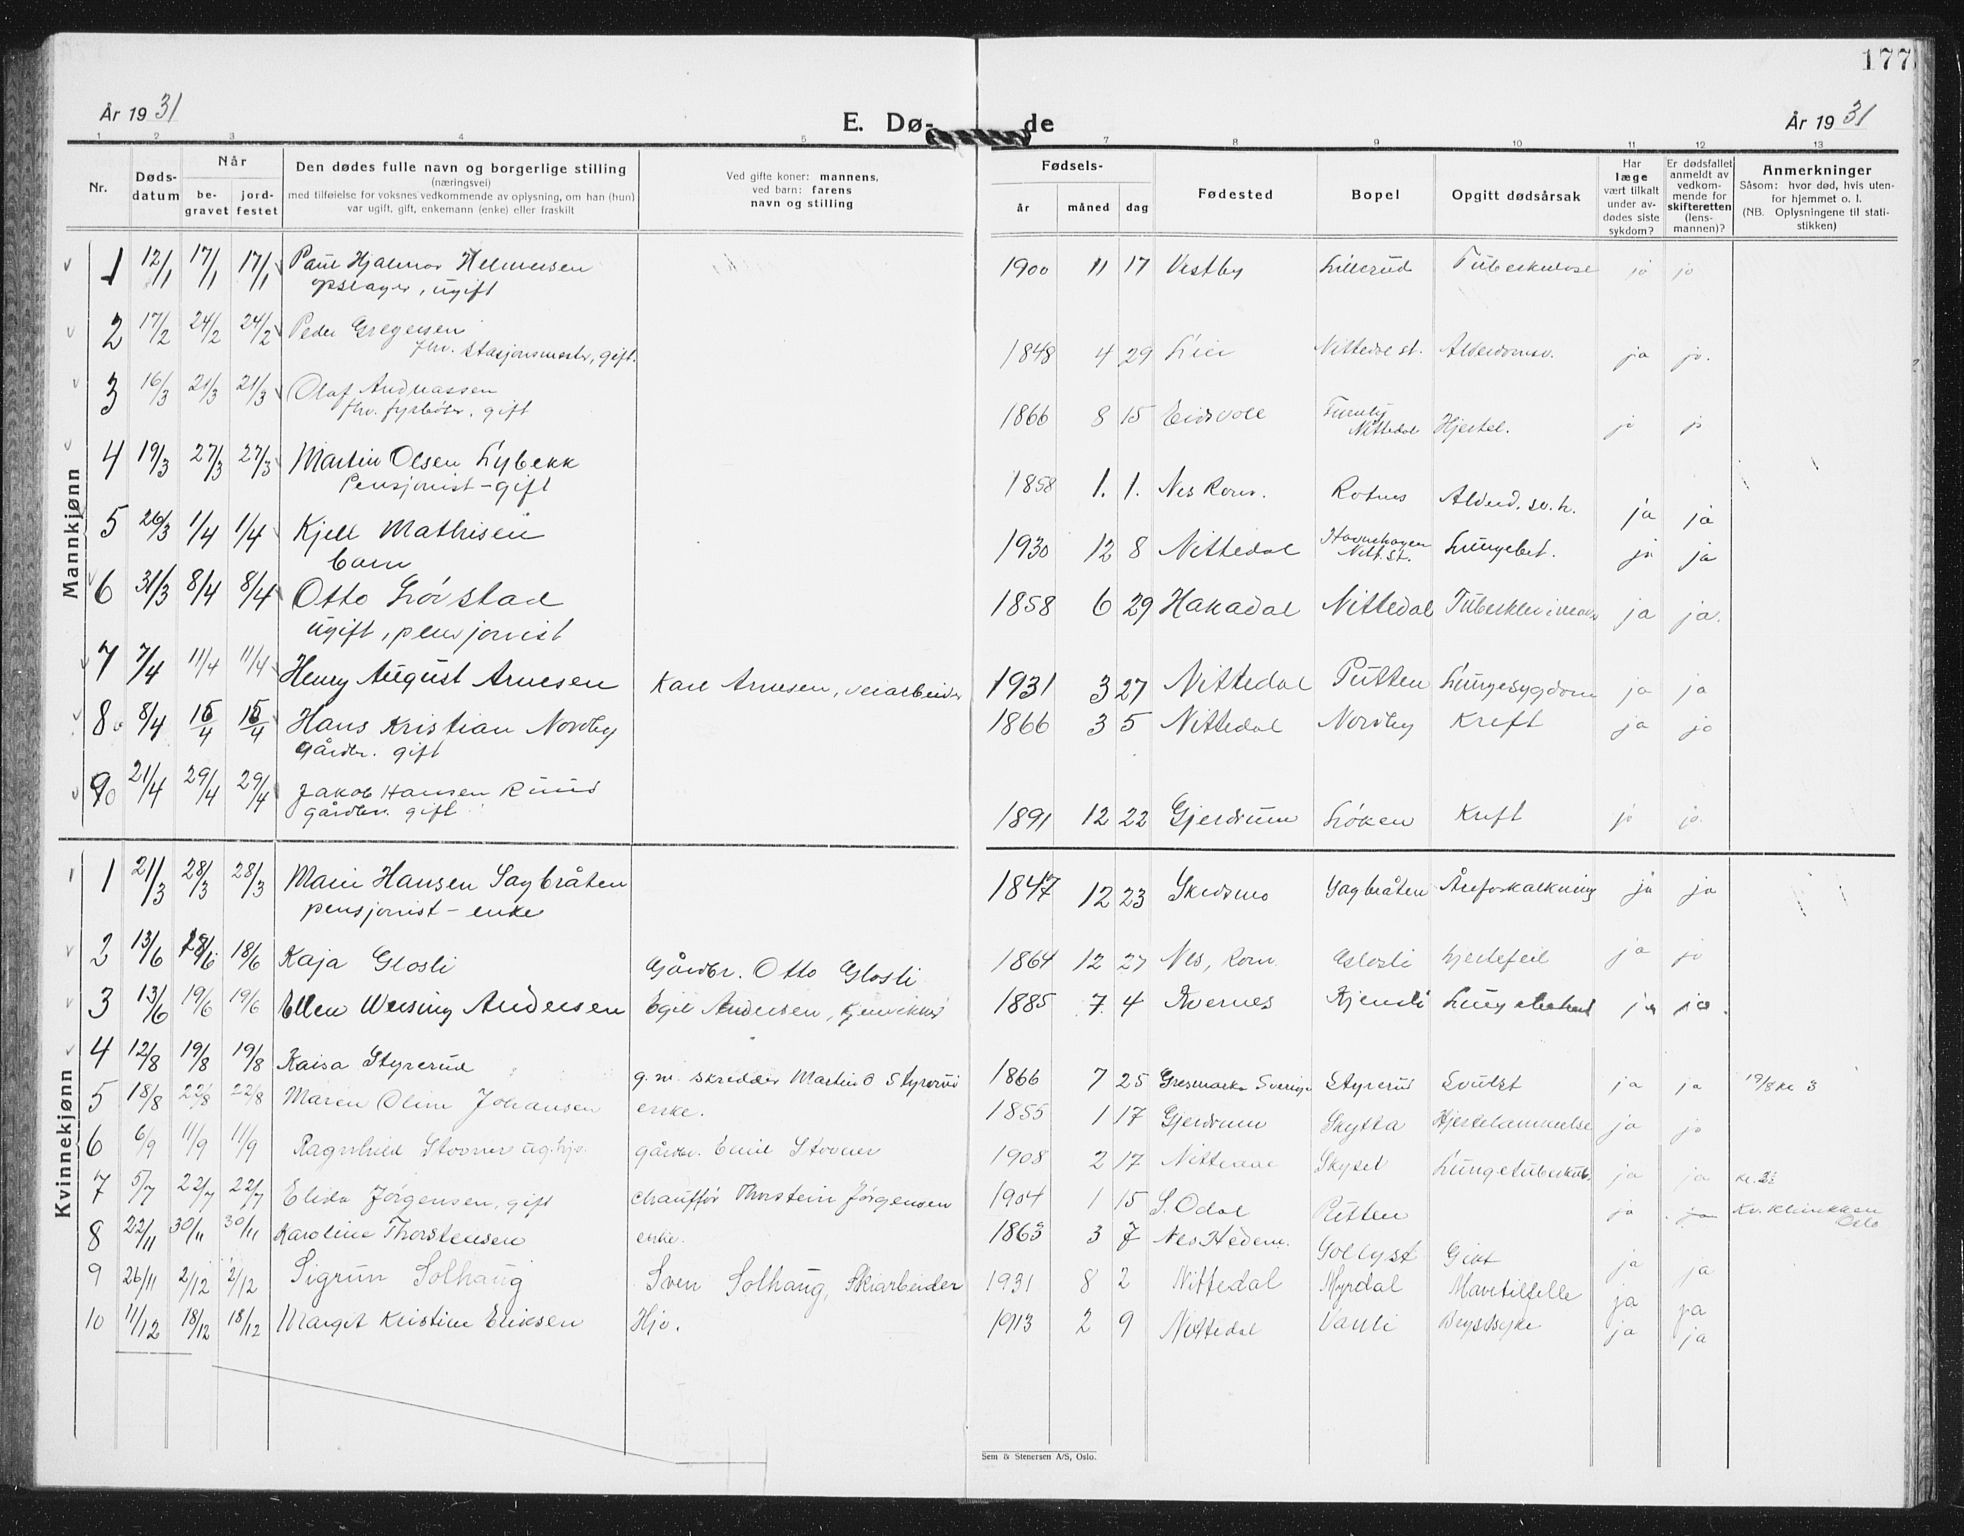 177
År 1931
E. Dø-
de
År 1931
1 2 3 4 5 7 8 9 10 11 12 13
Nr.
Døds-
datum
Når
be-
gravet
jord-
festet
Den dødes fulle navn og borgerlige stilling
(næringsvei)
med tilføielse for voksnes vedkommende av oplysning, om han (hun)
var ugift, gift, enkemann (enke) eller fraskilt
Ved gifte koner: mannens,
ved barn: farens
navn og stilling
Fødsels-
år måned dag
Fødested
Bopel
Opgitt dødsårsak
Har
læge
vært tilkalt
under av-
dødes siste
sykdom?
Er dødsfallet
anmeldt av
vedkom-
mende for
skifteretten
(lens-
mannen)?
Anmerkninger
Såsom: hvor død, hvis uten-
for hjemmet o. l.
(NB. Oplysningene til stati-
stikken)
Mannkjønn
1 12/1 17/1 17/1 Paul Hjalmar Helmersen 1900 11 17 Vestby Lillerud Tuberkulose jo jo
opslager, ugift
2 17/2 24/2 24/2 Peder Gregersen
fhv. stasjonsmester, gift. 1848 4 29 Lier Nittedal st. Alderdomsv. ja jo.
3 16/3 21/3 21/3 Olaf Andreassen
fhv. fyrbøter, gift 1866 8 15 Eidsvoll Nittedal Hjertel. jo jo
4 19/3 27/3 27/3 Martin Olsen Lybekk
Pensjonist - gift 1858 1. 1. Nes Rom. Rotnes Alderd. sv. h. ja ja
5 26/3 1/4 1/4 Kjell Mathisen 1930 12 8 Nittedal Havnehagen Nitt. St. Lungebet. ja ja
barn
6 31/3 8/4 8/4 Otto Løvstad 1858 6 29 Hakadal Nittedal ja ja.
ugift, pensjonist
7 7/4 11/4 11/4 Henry August Arnesen Karl Arnesen, veiarbeider 1931 3 27 Nittedal Putten Lungesygdom ja ja
8 8/4 15/4 15/4 Hans Kristian Nordby 1866 3 5 Nittedal Nordby Kreft ja jo
gårdbr. gift
9 21/4 29/4 29/4 Jakob Hansen Ruud
gårdbr. gift 1891 12 22 Gjerdrum Løken Kreft jo jo.
Kvinnekjønn
1 21/3 28/3 28/3 Marie Hansen Sagbråten 1847 12 23 Skedsmo Sagbråten Åreforkalkning ja ja
pensjonist - enke
2 13/6 18/6 18/6 Kaja Glosli Gårdbr. Otto Glosli 1864 12 27 Nes, Rom. Glosli hjertefeil ja jo
3 13/6 19/6 19/6 Ellen Weising Andersen Egil Andersen, 1885 7 4 Kvernes Kjensli ja ja.
4 12/8 19/8 19/8 Kaisa Styrerud g. m. skredder Martin O Styrerud 1866 7 25 Gresmark Sverige Styrerud Svulst ja ja 19/8 kl 3
5 18/8 22/8 22/8 Maren Oline Johansen enke. 1855 1 17 Gjerdrum Skytta Hjertelammelse ja jo
6 6/9 11/9 11/9 Ragnhild Stovner ug. hjv. gårdbr. Emil Stovner 1908 2 17 Nittedal Skyset Lungetuberkul. ja ja
7 5/7 22/7 22/7 Elida Jörgensen, gift chauffør Thorstein Jörgensen 1904 1 15 S. Odal Putten ja ja Kv. klinikken Oslo
8 22/11 30/11 30/11 Karoline Thorstensen enke. 1863 3 7 Nes Hedem. Sollyst Gikt ja ja
9 26/11 2/12 2/12 Sigrun Solhaug Sven Solhaug, Skiarbeider 1931 8 2 Nittedal Myrdal Mavetilfelle ja ja
10 11/12 18/12 18/12 Margit Kristine Eriksen Hjv. 1913 2 9 Nittedal Vauli Brystsyke ja ja
Sem & Stenersen A/S, Oslo.